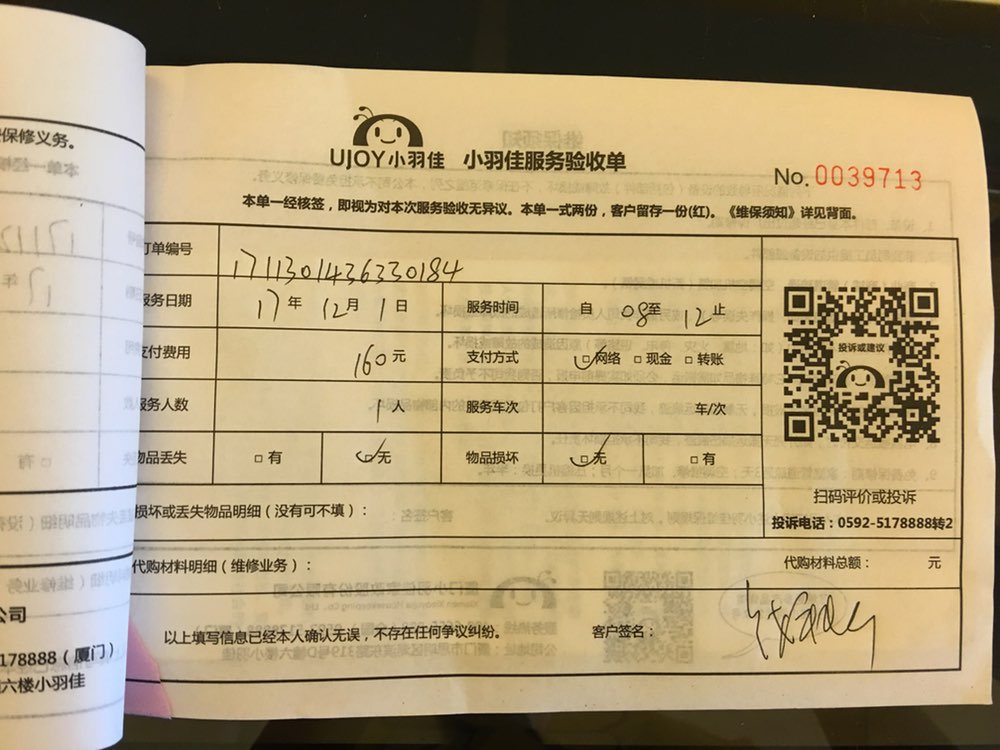 保修义务。
UJOY小羽佳 小羽佳服务验收单
No. 0039713
本单一经核签，即视为对本次服务验收无异议。本单一式两份，客户留存一份(红)。《维保须知》详见背面。
订单编号 1711301436330184
服务日期 17年 12月 1日 服务时间 自 08至 12止
支付费用 160元 支付方式 网络 现金 转账
服务人数 1人 服务车次 车/次
物品丢失 有 无 物品损坏 无 有
投诉或建议
扫码评价或投诉
投诉电话：0592-5178888转2
损坏或丢失物品明细（没有可不填）：
代购材料明细（维修业务）： 代购材料总额： 元
以上填写信息已经本人确认无误，不存在任何争议纠纷。 客户签名：
公司
178888（厦门）
六楼小羽佳